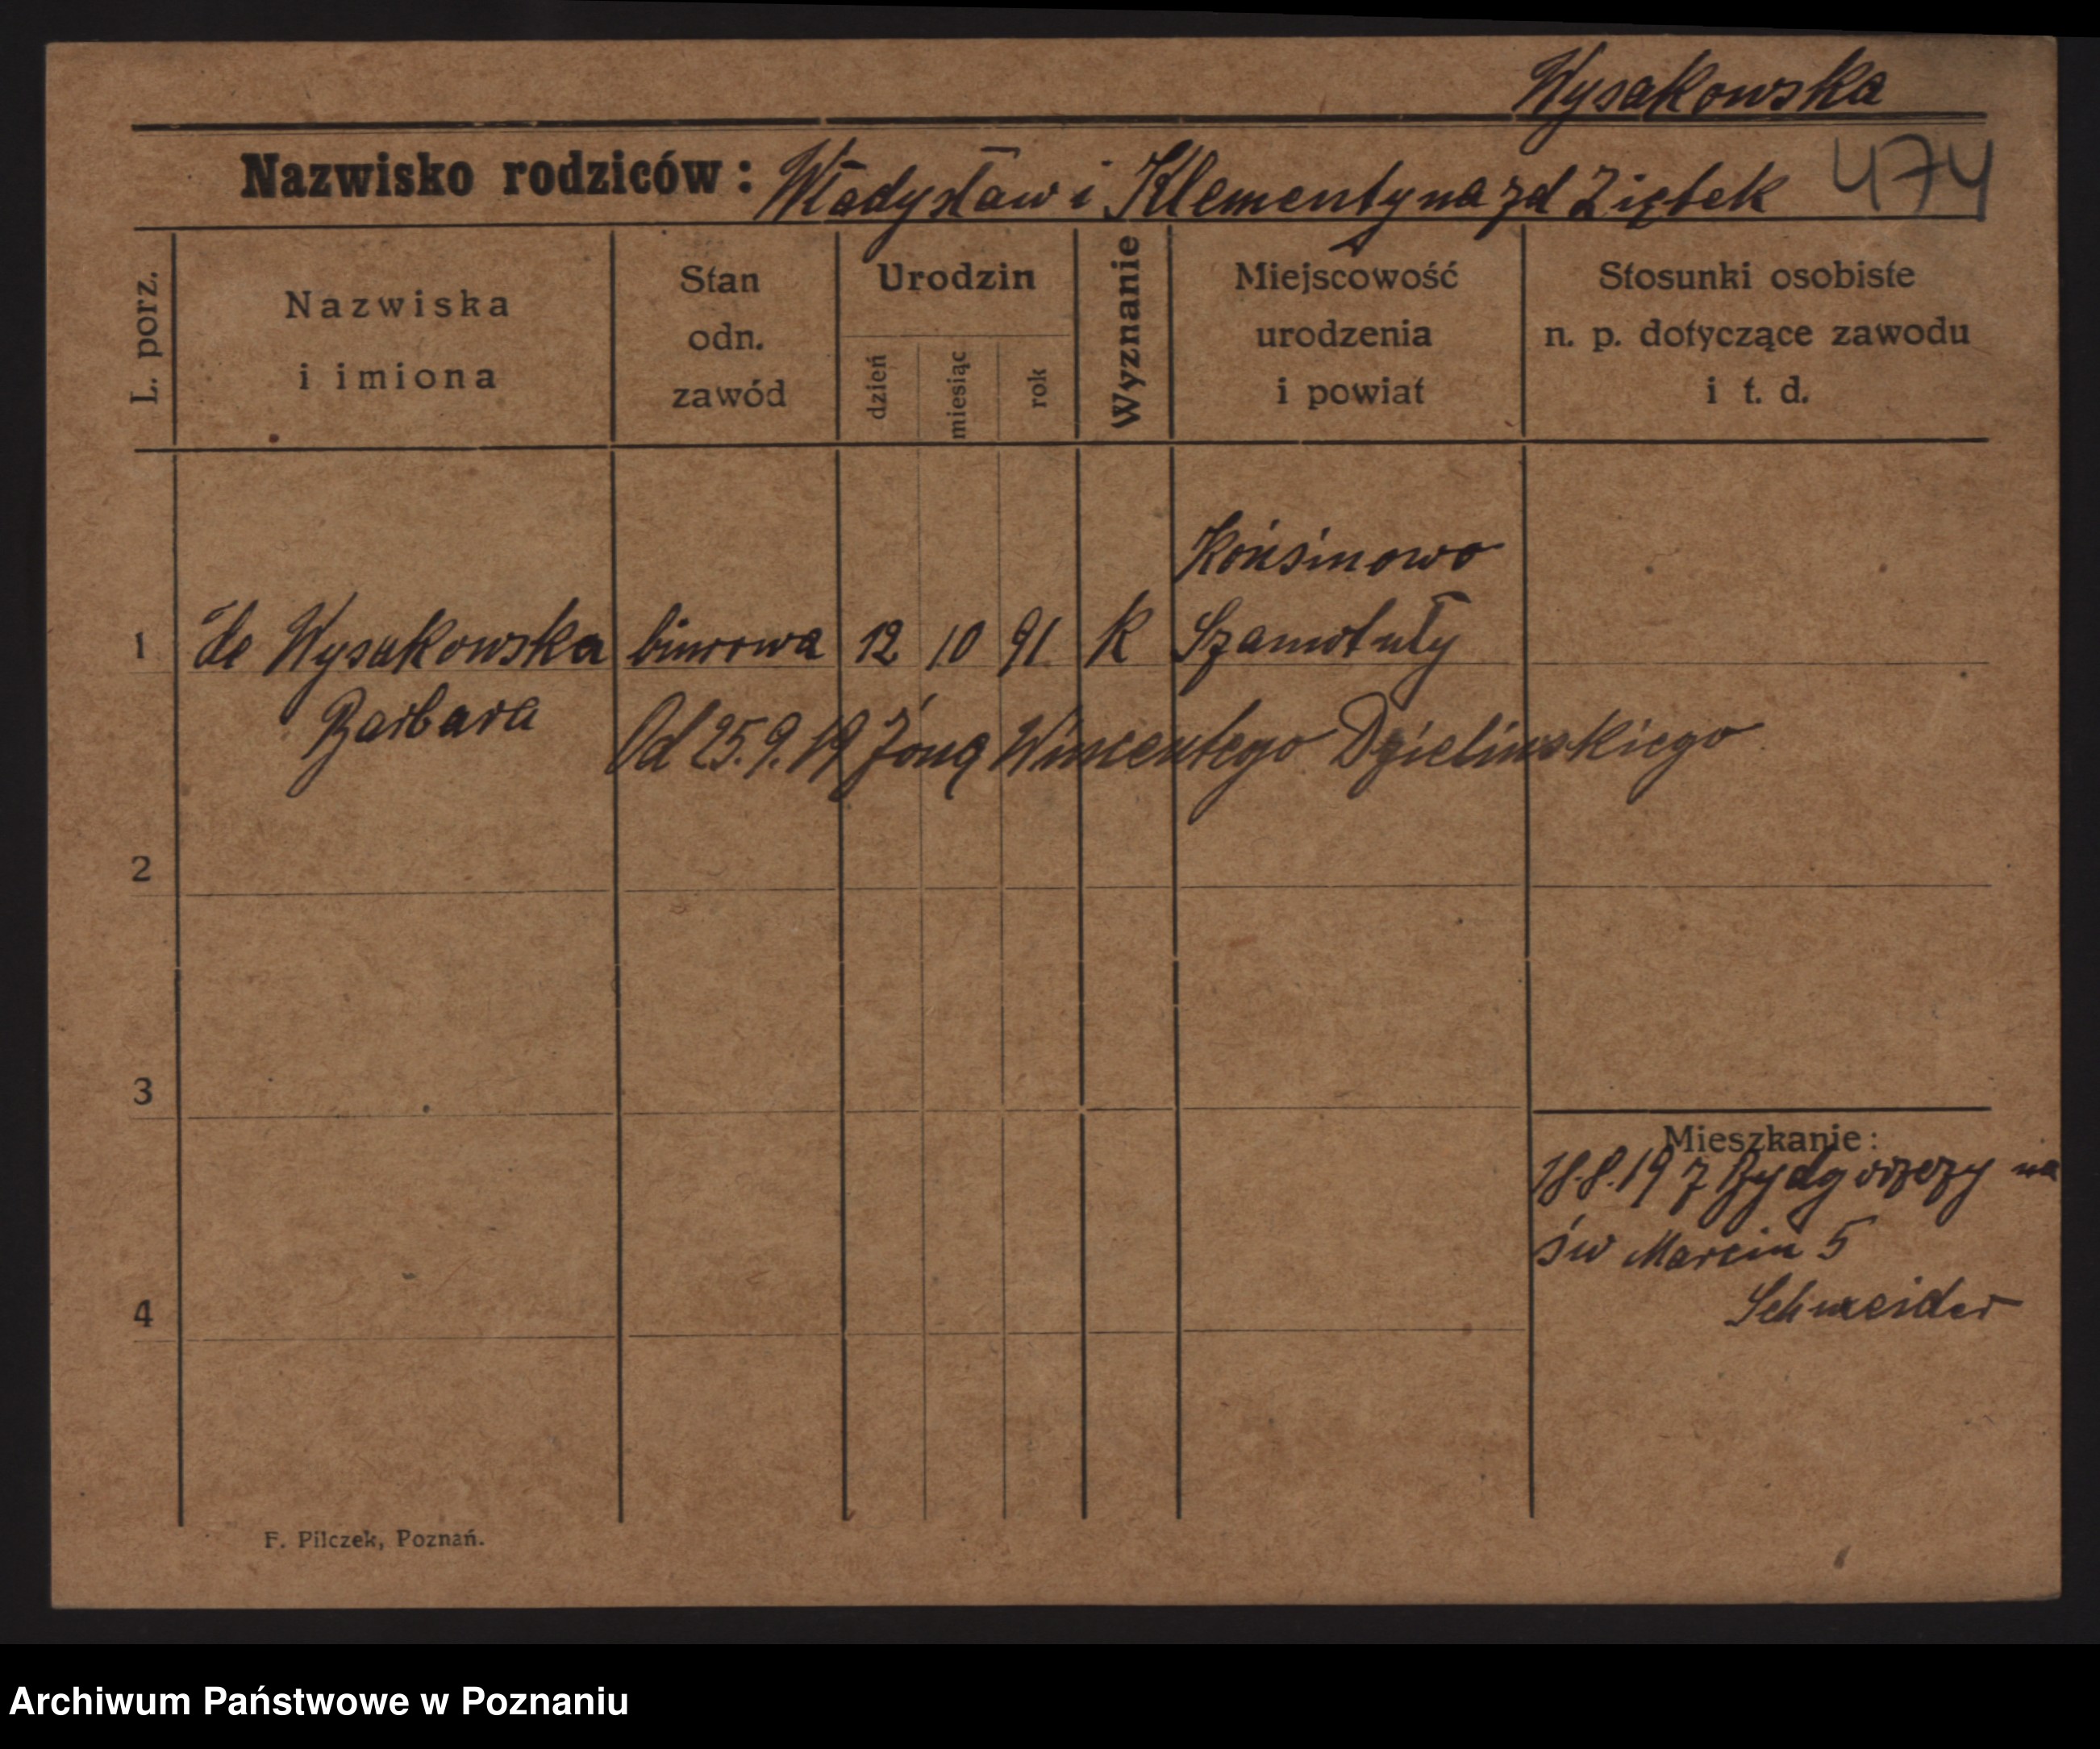 Wysakowska
Nazwisko rodziców: Władysław i Klementyna zd Ziętek 474
L. porz.
Nazwiska
i imiona
Stan
odn.
zawód
Urodzin
dzień
miesiąc
rok
Wyznanie
Miejscowość
urodzenia
i powiat
Stosunki osobiste
n. p. dotyczące zawodu
i t. d.
Końsinowo
1 de Wysakowska biurowa 12 10 91 K Szamotuły
Barbara
Od 25.9.19 żoną Wincentego Dzielinskiego
2
3
4
Mieszkanie:
18.8.19 z Bydgoszczy na
św Marcin 5
Schneider
F. Pilczek, Poznań.
Archiwum Państwowe w Poznaniu